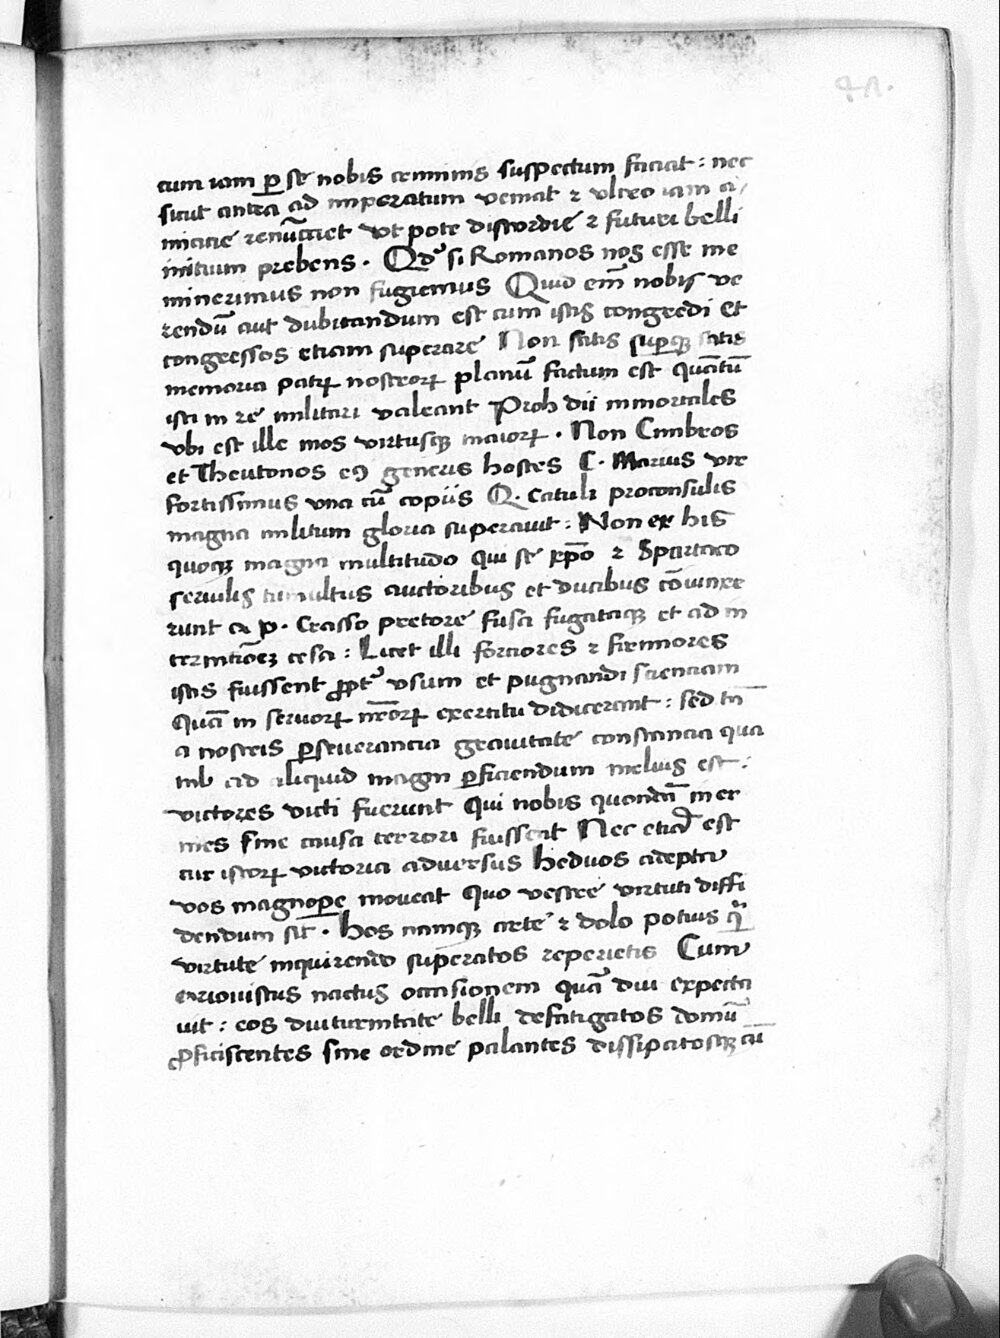 cum iam ꝑ se nobis criminis suspectum faciat : nec
sicut antea ad imperatum veniat ⁊ vltro iam a/
micitie renūciet vt pote discordie ⁊ futuri belli
initium prebens . Qđ si Romanos nos esse me
minerimus non fugiemus Quid em̄ nobis ve
rendū aut dubitandum est cum istis congredi et
congressos etiam superare Non satis suꝑqꝫ satis
memoria patꝝ nostroꝝ planū factum est quātū
isti in re militari valeant Proh dii immortales
vbi est ille mos virtusqꝫ maioꝝ . Non Cimbros
et Theutonos eꝯ generis hostes C . Marius vir
fortissimus vna cū copiis Q . Catuli proconsulis
magna militum gloria superauit : Non ex his
quoqꝫ magna multitudo qui se xp̄o ⁊ Spartaco
seruilis tumultus auctoribus et ducibus cōiunxe
runt a p . Crasso pretore fusa fugataqꝫ et ad in
ternitiōeꝫ cesa : Licet illi fortiores ⁊ firmiores
istis fuissent ꝓpt᷒ vsum et pugnandi scientiam
Quā in seruoꝝ nr̄oꝝ exercitu didicerant : sed tn̄
a nostris ꝑseuerancia grauitate constancia qua
nil ad aliquid magni ꝑficiendum melius est :
victores victi fuerunt Qui nobis quondā iner
mes sine causa terrori fuissent Nec etiā est
cur istoꝝ victoria aduersus heduos adepta
vos magnope moueat Quo vestre virtuti diffi
dendum sit . Hos namqꝫ arte ⁊ dolo potius q̄
virtute inquirendo superatos reperietis Cum
ariouistus nactus occasionem quā diu expecta
uit : eos diuturnitate belli defatigatos domū
ꝓficiscentes sine ordine palantes dissipatosqꝫ cū